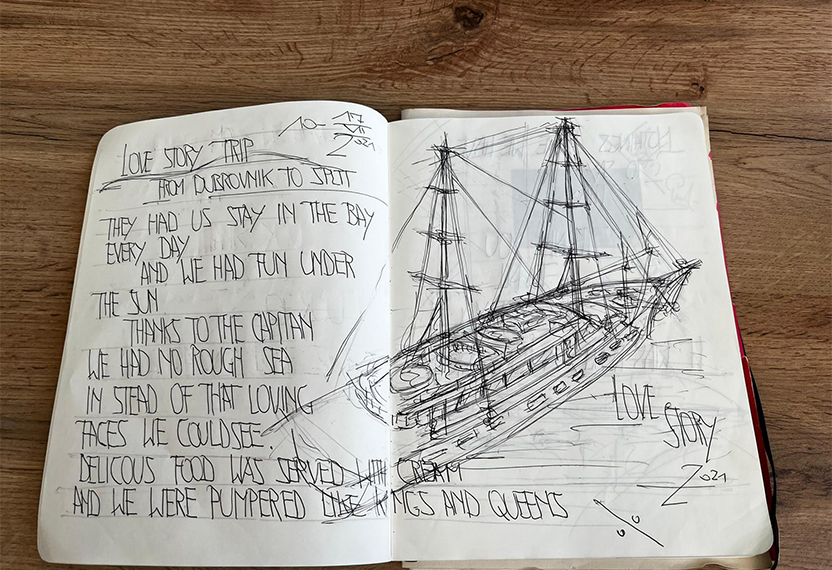 10- 17
VII
2021
LOVE STORY TRIP
FROM DUBROVNIK TO SPLIT
THEY HAD US STAY IN THE BAY
EVERY DAY
AND WE HAD FUN UNDER
THE SUN
THANKS TO THE CAPITAN
WE HAD NO ROUGH SEA
IN STEAD OF THAT LOVING
FACES WE COULD SEE
DELICOUS FOOD WAS SERVED WITH CREAM
AND WE WERE PUMPERED LIKE KINGS AND QUEENS
LOVE
STORY
2021